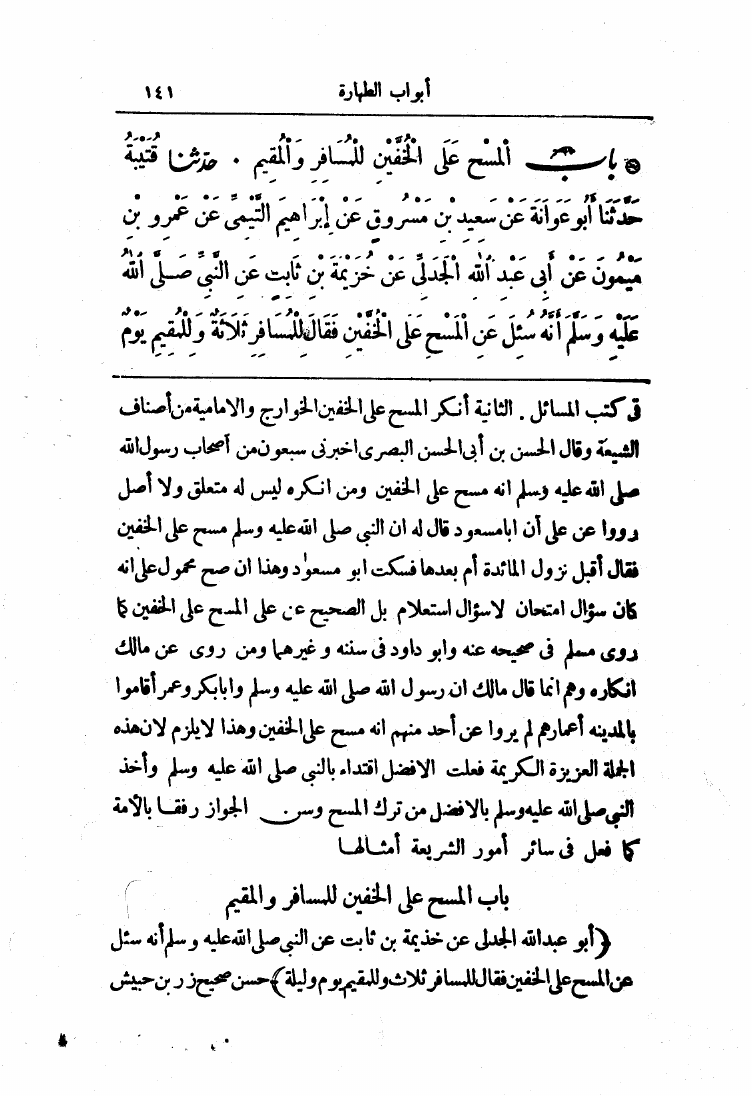 أبواب الطهارة ١٤١
باب الْمَسْحِ عَلَى الْخُفَّيْنِ لِلْمُسَافِرِ وَالْمُقِيمِ . حَدَّثَنَا قُتَيْبَةُ
حَدَّثَنَا أَبُو عَوَانَةَ عَنْ سَعِيدِ بْنِ مَسْرُوقٍ عَنْ إِبْرَاهِيمَ التَّيْمِىِّ عَنْ عَمْرِو بْنِ
مَيْمُونَ عَنْ أَبِى عَبْدِ اللهِ الْجَدَلِىِّ عَنْ خُزَيْمَةَ بْنِ ثَابِتٍ عَنِ النَّبِىِّ صَلَّى اللهُ
عَلَيْهِ وَسَلَّمَ أَنَّهُ سُئِلَ عَنِ الْمَسْحِ عَلَى الْخُفَّيْنِ فَقَالَ لِلْمُسَافِرِ ثَلَاثَةٌ وَلِلْمُقِيمِ يَوْمٌ
فى كتب المسائل . الثانية أنكر المسح على الخفين الخوارج والامامية من أصناف
الشيعة وقال الحسن بن أبى الحسن البصرى اخبرنى سبعون من أصحاب رسول الله
صلى الله عليه وسلم انه مسح على الخفين ومن انكره ليس له متعلق ولا أصل
رووا عن على أن ابا مسعود قال له ان النبى صلى الله عليه وسلم مسح على الخفين
فقال أقبل نزول المائدة أم بعدها فسكت ابو مسعود وهذا ان صح محمول على انه
كان سؤال امتحان لا سؤال استعلام بل الصحيح عن على المسح على الخفين كما
روى مسلم فى صحيحه عنه وابو داود فى سننه وغيرهما ومن روى عن مالك
انكاره وهم انما قال مالك ان رسول الله صلى الله عليه وسلم وابا بكر وعمر أقاموا
بالمدينه أعمارهم لم يروا عن أحد منهم انه مسح على الخفين وهذا لا يلزم لان هذه
الجملة العزيزة الكريمة فعلت الافضل اقتداء بالنبى صلى الله عليه وسلم وأخذ
النبى صلى الله عليه وسلم بالافضل من ترك المسح وسن الجواز رفقا بالأمة
كما فعل فى سائر أمور الشريعة أمثالها
باب المسح على الخفين للمسافر والمقيم
﴿أبو عبد الله الجدلى عن خذيمة بن ثابت عن النبى صلى الله عليه وسلم أنه سئل
عن المسح على الخفين فقال للمسافر ثلاث وللمقيم يوم وليلة﴾ حسن صحيح زر بن حبيش